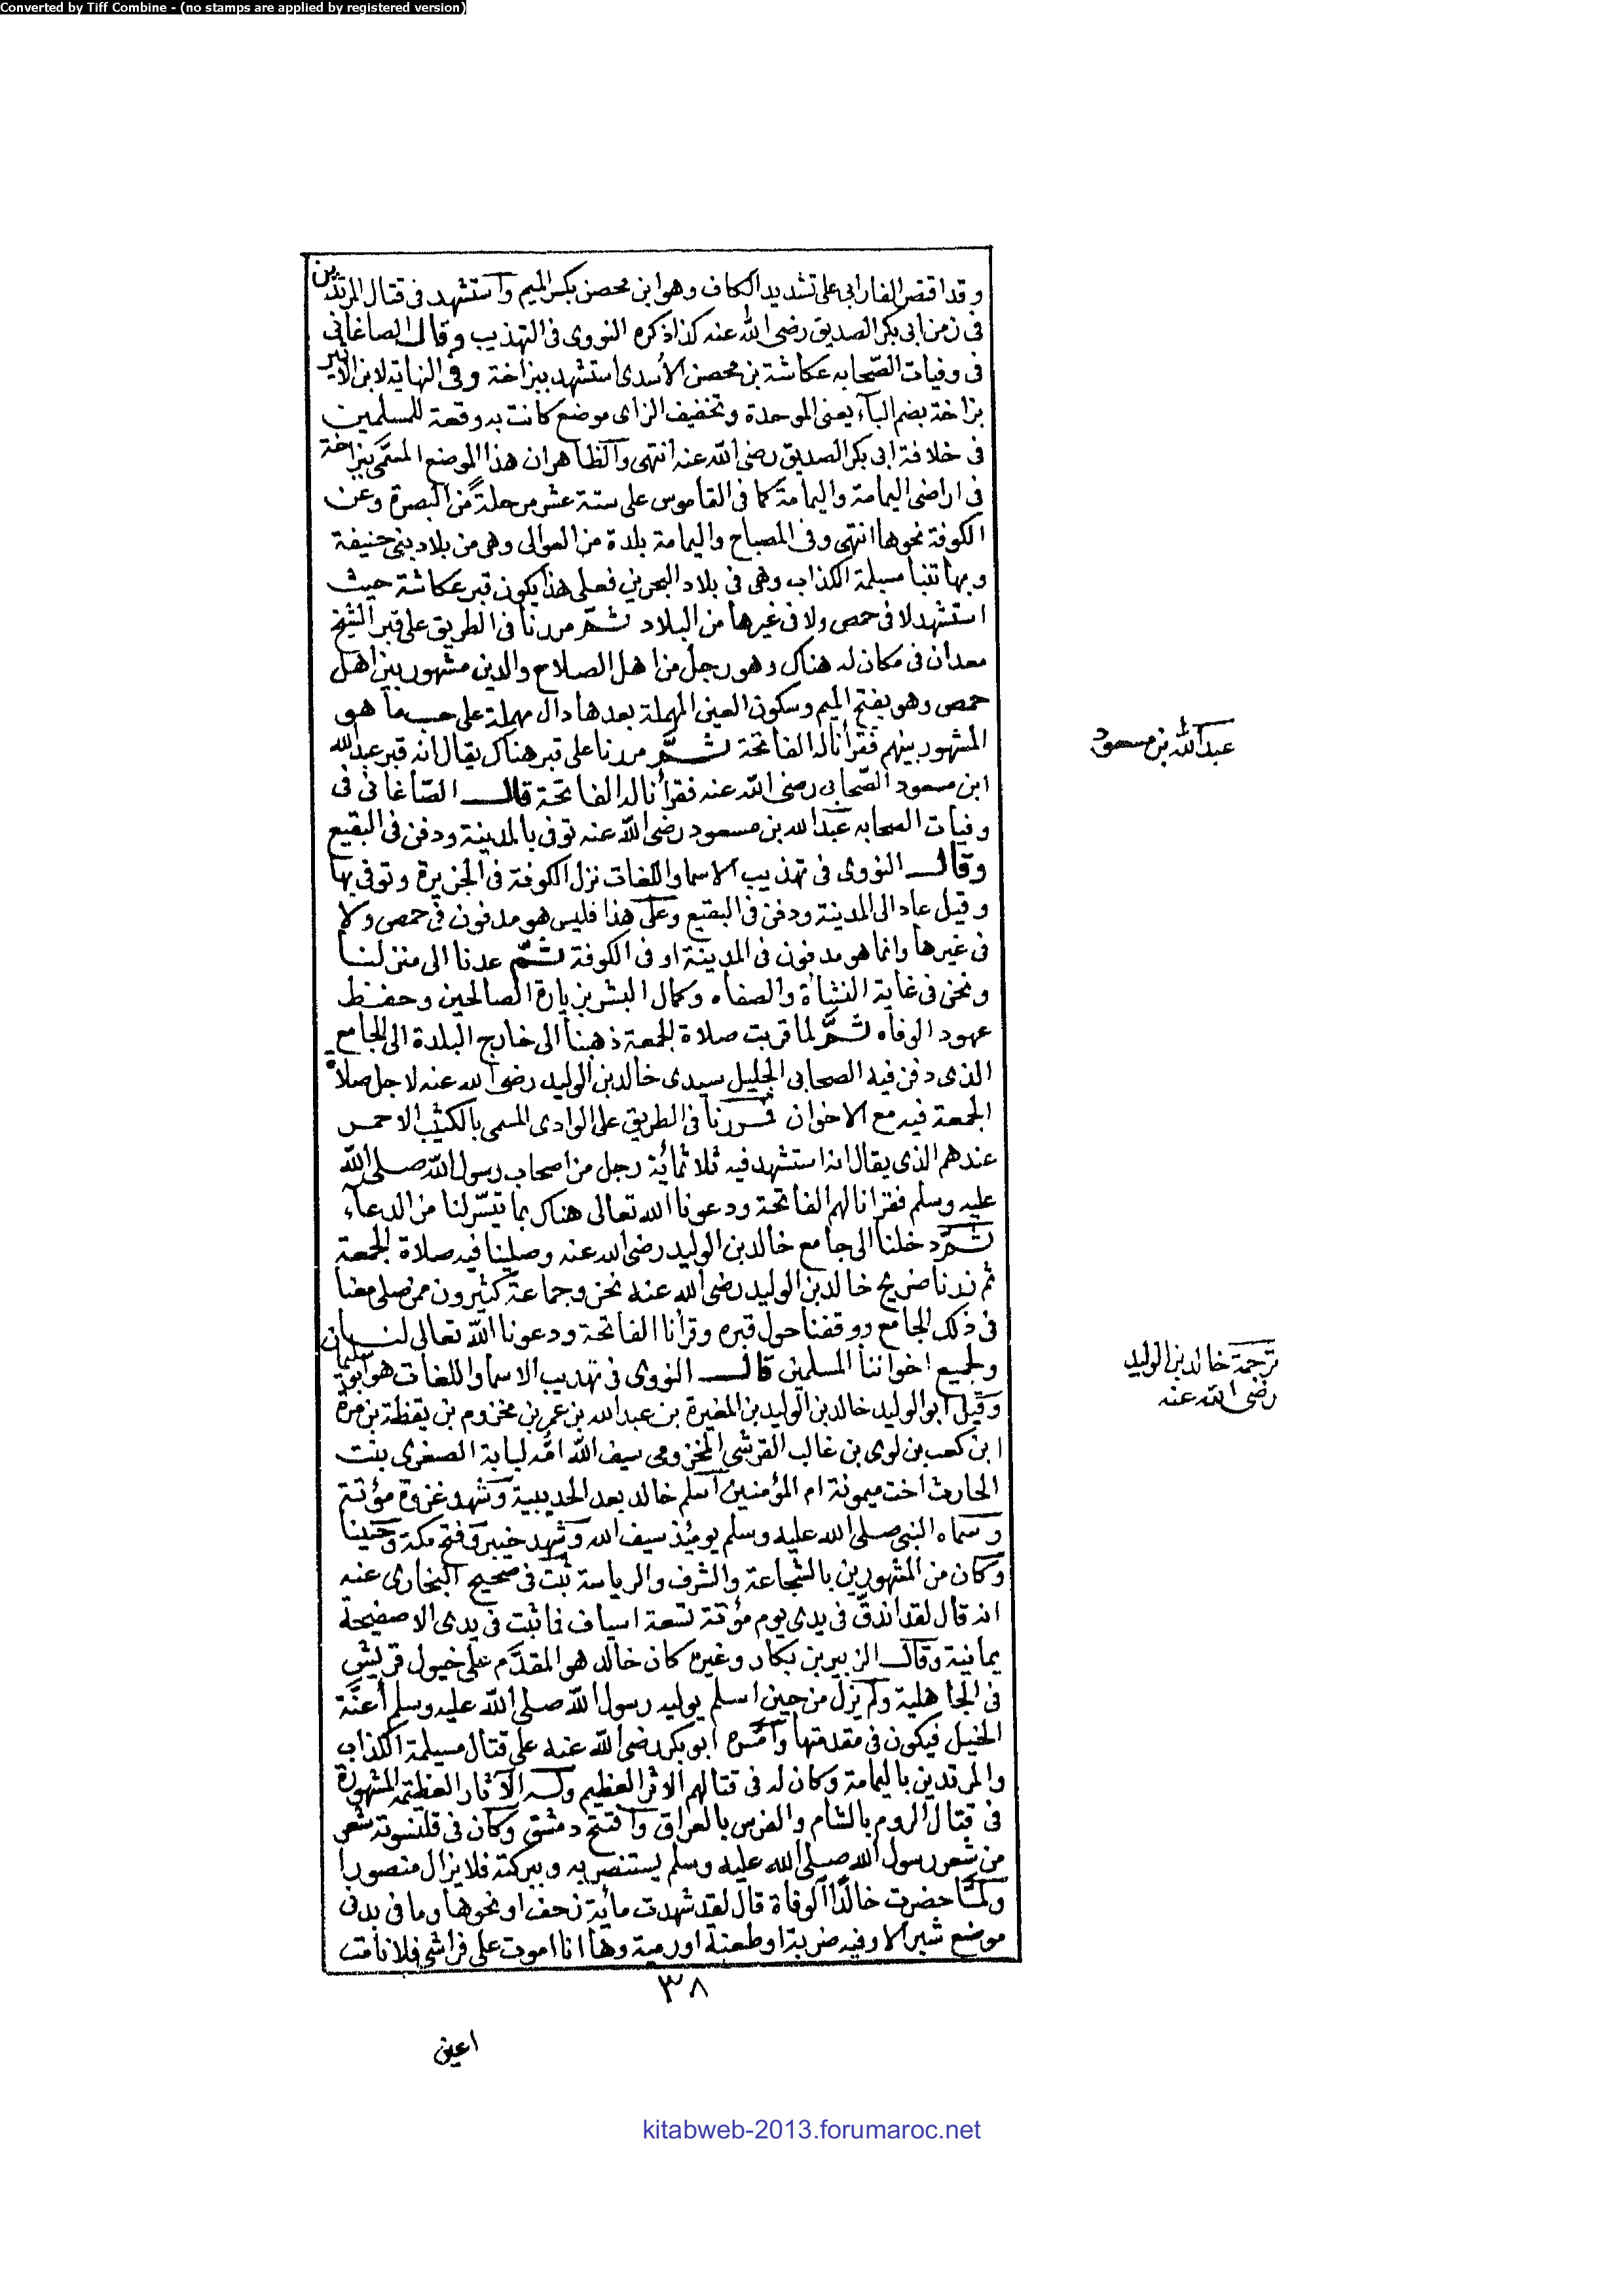 Converted by Tiff Combine - (no stamps are applied by registered version)
وقد اقتصر الفارابى على تشديد الكاف وهو ابن محصن بكسر الميم واستشهد فى قتال المرتدين
فى زمن ابى بكر الصديق رضى الله عنه كذا ذكره النووى فى التهذيب وقال الصاغانى
فى وفيات الصّحابه عكاشة بن محصن الأسدى استشهد ببزاخة وفى النهاية لابن الاثير
بزاخة بضم البآء يعنى الموحدة وتخفيف الزاى موضع كانت به وقعة للمسلمين
فى خلافة ابى بكر الصديق رضى الله عنه انتهى والظاهر ان هذا الموضع المسمّى ببزاخة
فى اراضى اليمامة واليمامة كما فى القاموس على ستة عشر مرحلة من البصرة وعن
الكوفة نحوها انتهى وفى المصباح واليمامة بلدة من العوالى وهى من بلاد بنى حنيفة
وبها تنبا مسيلمة الكذاب وهى فى بلاد البحرين فعلى هذا يكون قبر عكاشة حيث
استشهد لا فى حمص ولا فى غيرها من البلاد ثمّ مررنا فى الطريق على قبر الشيخ
معدان فى مكان له هناك وهو رجل من اهل الصلاح والدين مشهور بين اهل
حمص وهو بفتح الميم وسكون العين المهملة بعدها دال مهملة على حسب ما هو
المشهور بينهم فقرأنا له الفاتحة ثمَّ مررنا على قبر هناك يقال انه قبر عبد الله
عبد الله بن مسعود
ابن مسعود الصّحابى رضى الله عنه فقرأنا له الفاتحة قال الصّاغانى فى
وفيات الصحابه عبد الله بن مسعود رضى الله عنه توفى بالمدينة ودفن فى البقيع
وقال النووى فى تهذيب الاسما واللغات نزل الكوفة فى الجزيرة وتوفى بها
وقيل عاد الى المدينة ودفن فى البقيع وعلى هذا فليس هو مدفون فى حمص ولا
فى غيرها وانما هو مدفون فى المدينة او فى الكوفة ثمّ عدنا الى منزلنا
ونحن فى غاية النشأة والصفاء وكمال البشر بزيارة الصالحين وحفظ
عهود الوفاء ثمَّ لما قربت صلاة الجمعة ذهبنا الى خارج البلدة الى الجامع
الذى دفن فيه الصحابى الجليل سيدى خالد بن الوليد رضى الله عنه لاجل صلاة
الجمعة فيه مع الاخوان فمررنا فى الطريق على الوادى المسمى بالكثيب الاحمر
عندهم الذى يقال انه استشهد فيه ثلاثمائة رجل من اصحاب رسول الله صلى الله
عليه وسلم فقرانا لهم الفاتحة ودعونا الله تعالى هناك بما تيسّر لنا من الدعاء
ثمّ دخلنا الى جامع خالد بن الوليد رضى الله عنه وصلينا فيه صلاة الجمعة
ثم زرنا ضريح خالد بن الوليد رضى الله عنه نحن وجماعة كثيرون ممن صلى معنا
فى ذلك الجامع ووقفنا حول قبره وقرأنا الفاتحة ودعونا الله تعالى لنا
ولجميع اخواننا المسلمين قال النووى فى تهذيب الاسما واللغات هو ابو سليمان
ترجمة خالد بن الوليد
رضى الله عنه
وقيل ابو الوليد خالد بن الوليد بن المغيرة بن عبد الله بن عمر بن مخزوم بن يقظة بن مرة
ابن كعب بن لوى بن غالب القرشى المخزومى سيف الله امّه لبابة الصغرى بنت
الحارث اخت ميمونة ام المؤمنين اسلم خالد بعد الحديبية وشهد غزوة مؤتة
وسماه النبى صلى الله عليه وسلم يومئذ سيف الله وشهد خيبر وفتح مكة وحنينا
وكان من المشهورين بالشجاعة والشرف والرياسة ثبت فى صحيح البخارى عنه
انه قال لقد اندقّ فى يدى يوم مؤتة تسعة اسياف فما ثبت فى يدى الا صفيحة
يمانية وقال الزبير بن بكار وغيره كان خالد هو المقدَّم على خيول قريش
فى الجاهلية ولم يزل من حين اسلم يوليه رسول الله صلى الله عليه وسلم أعنَّة
الخيل فيكون فى مقدمتها وأمّره ابو بكر رضى الله عنه على قتال مسيلمة الكذاب
والمرتدين باليمامة وكان له فى قتالهم الاثر العظيم وله الآثار العظيمة المشهورة
فى قتال الروم بالشام والفرس بالعراق وافتتح دمشق وكان فى قلنسوته شعر
من شعر رسول الله صلى الله عليه وسلم يستنصر به وببركته فلا يزال منصورا
ولمّا حضرت خالدًا الوفاة قال لقد شهدت مائة زحف او نحوها وما فى بدنى
موضع شبر الا وفيه ضربة او طعنة او رمية وها انا اموت على فراشى فلا نامت
٣٨
اعين
kitabweb-2013.forumaroc.net